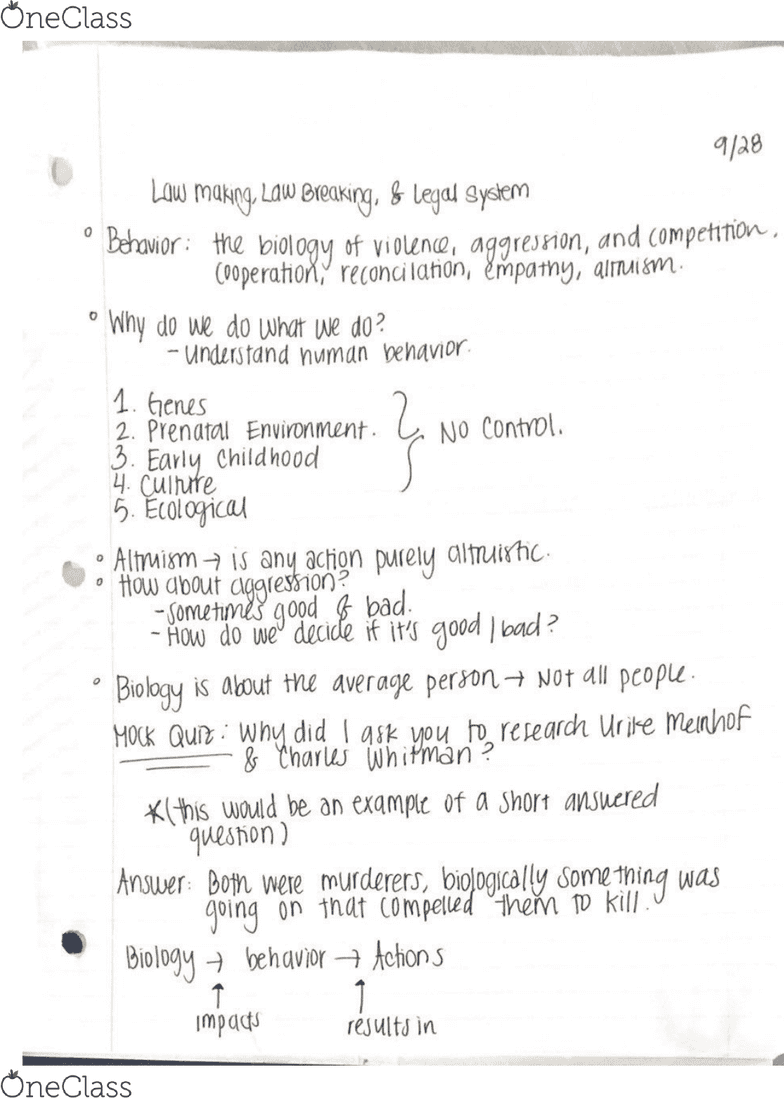 OneClass
9/28
Law making, Law Breaking, & Legal System
° Behavior: the biology of violence, aggression, and competition.
cooperation, reconcilation, empathy, altruism.
° Why do we do what we do?
- Understand human behavior.
1. Genes
2. Prenatal Environment. No Control.
3. Early Childhood
4. Culture
5. Ecological
° Altruism → is any action purely altruistic.
° How about aggression?
- Sometimes good & bad.
- How do we decide if it's good / bad?
° Biology is about the average person → Not all people.
Mock Quiz: Why did I ask you to research Urike Meinhof
& Charles Whitman?
*(this would be an example of a short answered
question)
Answer: Both were murderers, biologically something was
going on that compelled them to kill.
Biology → behavior → Actions
↑ ↑
impacts results in
OneClass